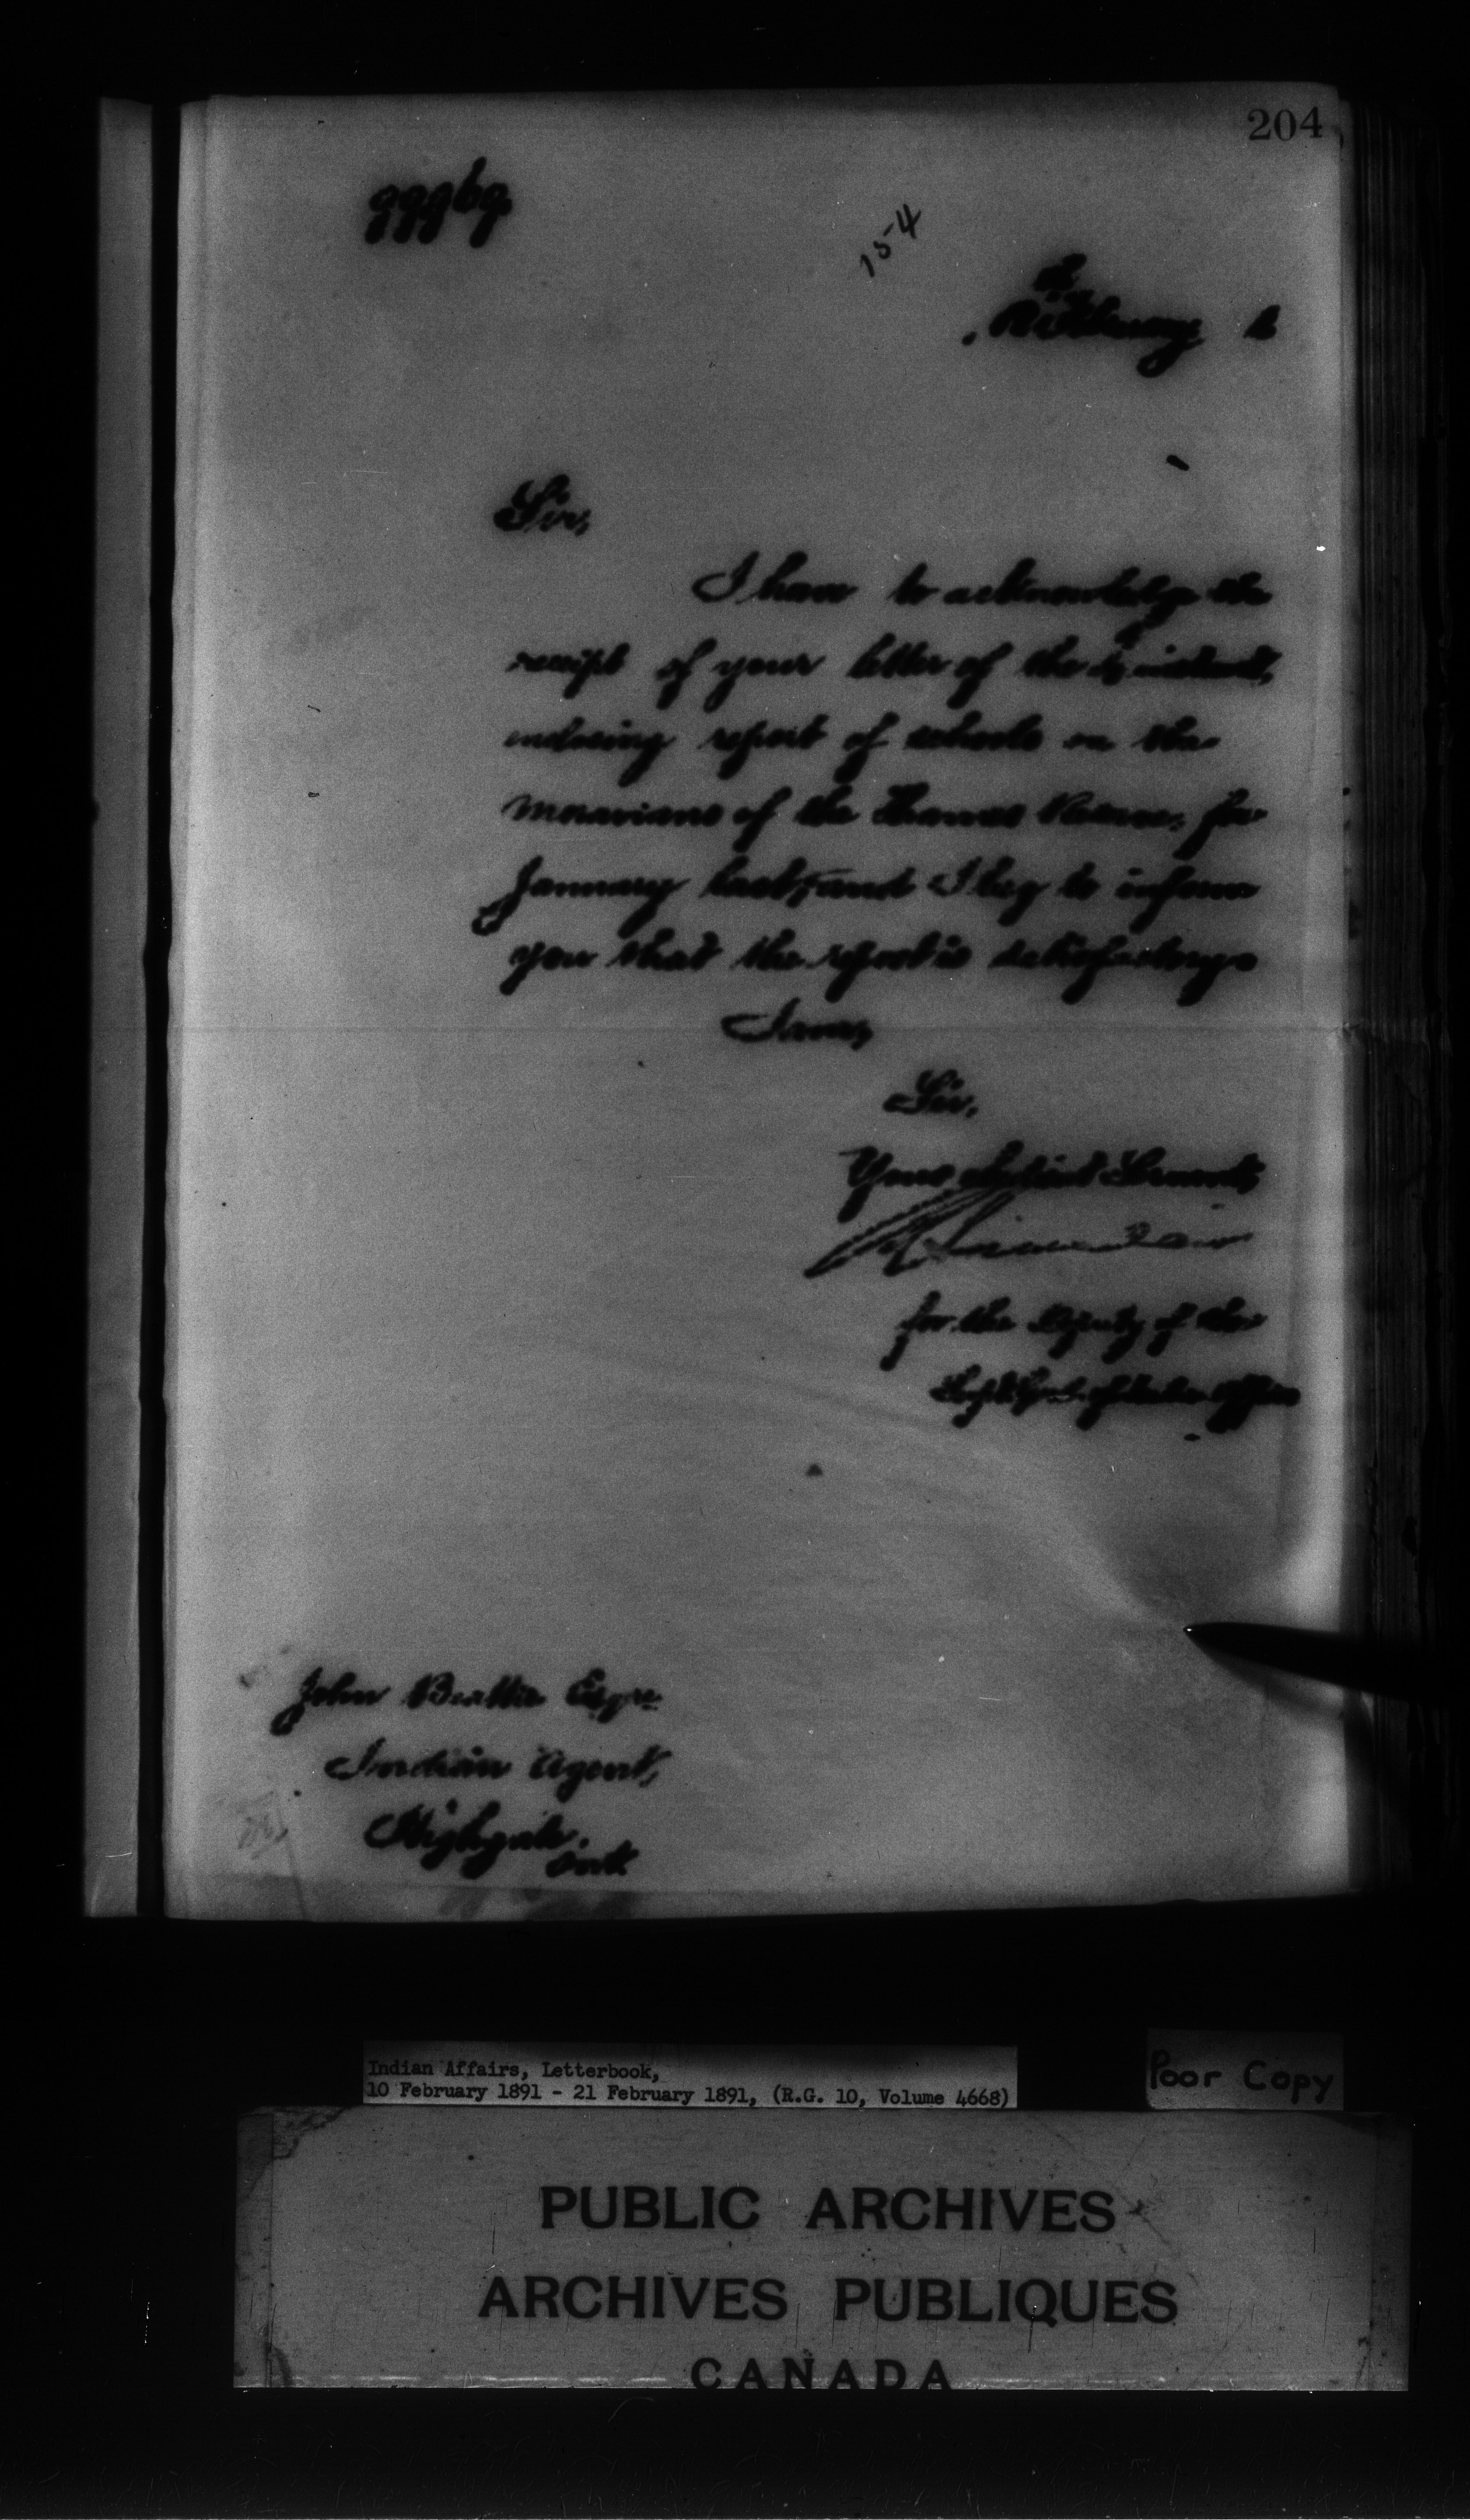 204
99969
154
February
Sir,
I have to acknowledge the
receipt of your letter of the instant,
enclosing report of schools on the
Moravians of the Thames Reserve, for
January last, and I beg to inform
you that the report is satisfactory
I am,
Sir,
Your obedient Servant,
for the Deputy of the
Supt Genl. of Indian Affairs
John Beattie Esqre.
Indian Agent,
Highgate.
Ont.
Indian Affairs, Letterbook,
10 February 1891 - 21 February 1891, (R.G. 10, Volume 4668)
Poor Copy
PUBLIC ARCHIVES
ARCHIVES PUBLIQUES
CANADA